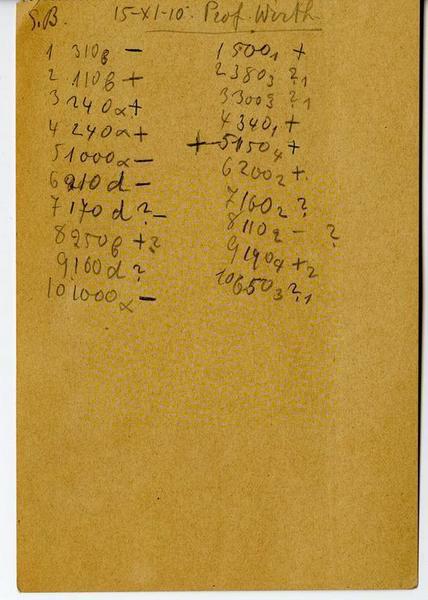 S.B. 15-XI-10. Prof. Wirth
1 310β —
2 110β +
3 240α +
4 240α +
5 1000α —
6 210 d —
7 170 d ? —
8 250β + ?
9 160 d ?
10 1000α —
1 500₁ +
2 380₃ ?₁
3 300₃ ?₁
4 340₁ +
+ 5 150₄ +
6 200₂ +
7 160₂ ?
8 110₂ — ?
9 190₄ +₂
10 650₃ ?₁